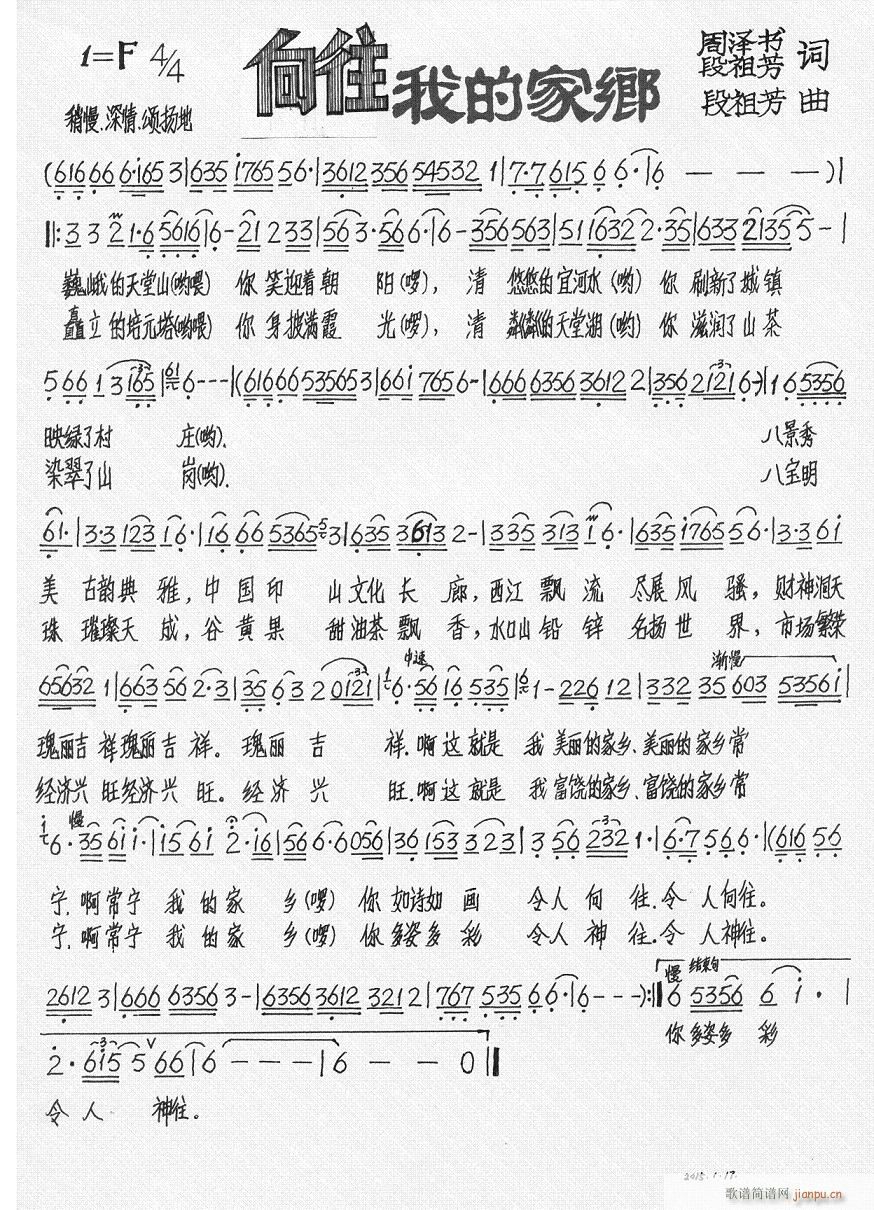 1=F 4/4
向往我的家鄉
周泽书 词
段祖芳
段祖芳 曲
稍慢、深情、颂扬地
(616 66 6·i65 3|635 i765 56·|3612 356 54532 1|7·7 615 6 6·|6 — — —)|
‖:3 3 2 1·6 5616|6-21 2 33|563·56 6·|6-356563|51 1632 2·35|633 21355-|
巍峨的天堂山(哟喂) 你 笑迎着朝 阳(啰), 清 悠悠的宜河水(哟) 你 刷新了城镇
矗立的培元塔(哟喂) 你 身披满霞 光(啰), 清 粼粼的天堂湖(哟) 你 滋润了山茶
5 66 1 3 165|6---|(61666 535653|66i 7656-|666 6356 3612 2|356 2121 6-)|1 6 5356
映绿了村 庄(哟). 八景秀
染翠了山 岗(哟). 八宝明
61·|3·3 123 16·|16 66 5365 3|635 3613 2-|335 313 i6·|635 i765 56·|3·3 6i
美 古韵典 雅,中 国 印 山文化 长 廊,西江 飘 流 尽展 风 骚, 财神洞天
珠 璀璨天 成,谷 黄 果 甜油茶 飘 香,水口山 铅 锌 名扬 世 界, 市场繁荣
中速 渐慢
65632 1|663 56 2·3|35 6 3 2 0121|6·56 16 535|1-226 12|332 35 603 5356i|
瑰丽吉 祥瑰丽吉 祥。 瑰丽 吉 祥.啊这就是 我 美丽的家乡、美丽的家乡常
经济兴 旺经济兴 旺。经济 兴 旺.啊这就是 我 富饶的家乡、富饶的家乡常
慢
6·35 6i i·|i5 6i 2·i6|56 6·6056|36 153 323|3 56 232 1·|6·7 56 6·|(616 56
宁,啊常宁 我 的 家 乡(啰) 你 如诗如 画 令人 向 往.令 人向往。
宁,啊常宁 我 的 家 乡(啰) 你 多姿多 彩 令人 神 往.令 人神往。
慢 结束句
2612 3|666 6356 3-|6356 3612 3212 2|767 535 66·|6---):‖6 5356 6 i·|
你 多姿多 彩
2·6i5 5 V 66|6 - - -|6 - - 0‖
令 人 神往。
2015.1.17.
歌谱简谱网 jianpu.cn